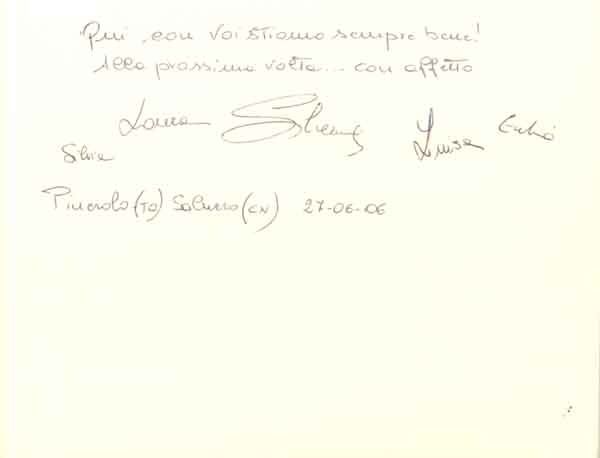 Qui, con Voi stiamo sempre bene!
Alla prossima volta... con affetto
Laura Luisa
Silvia
Pinerolo (TO) Saluzzo (CN) 27-06-06